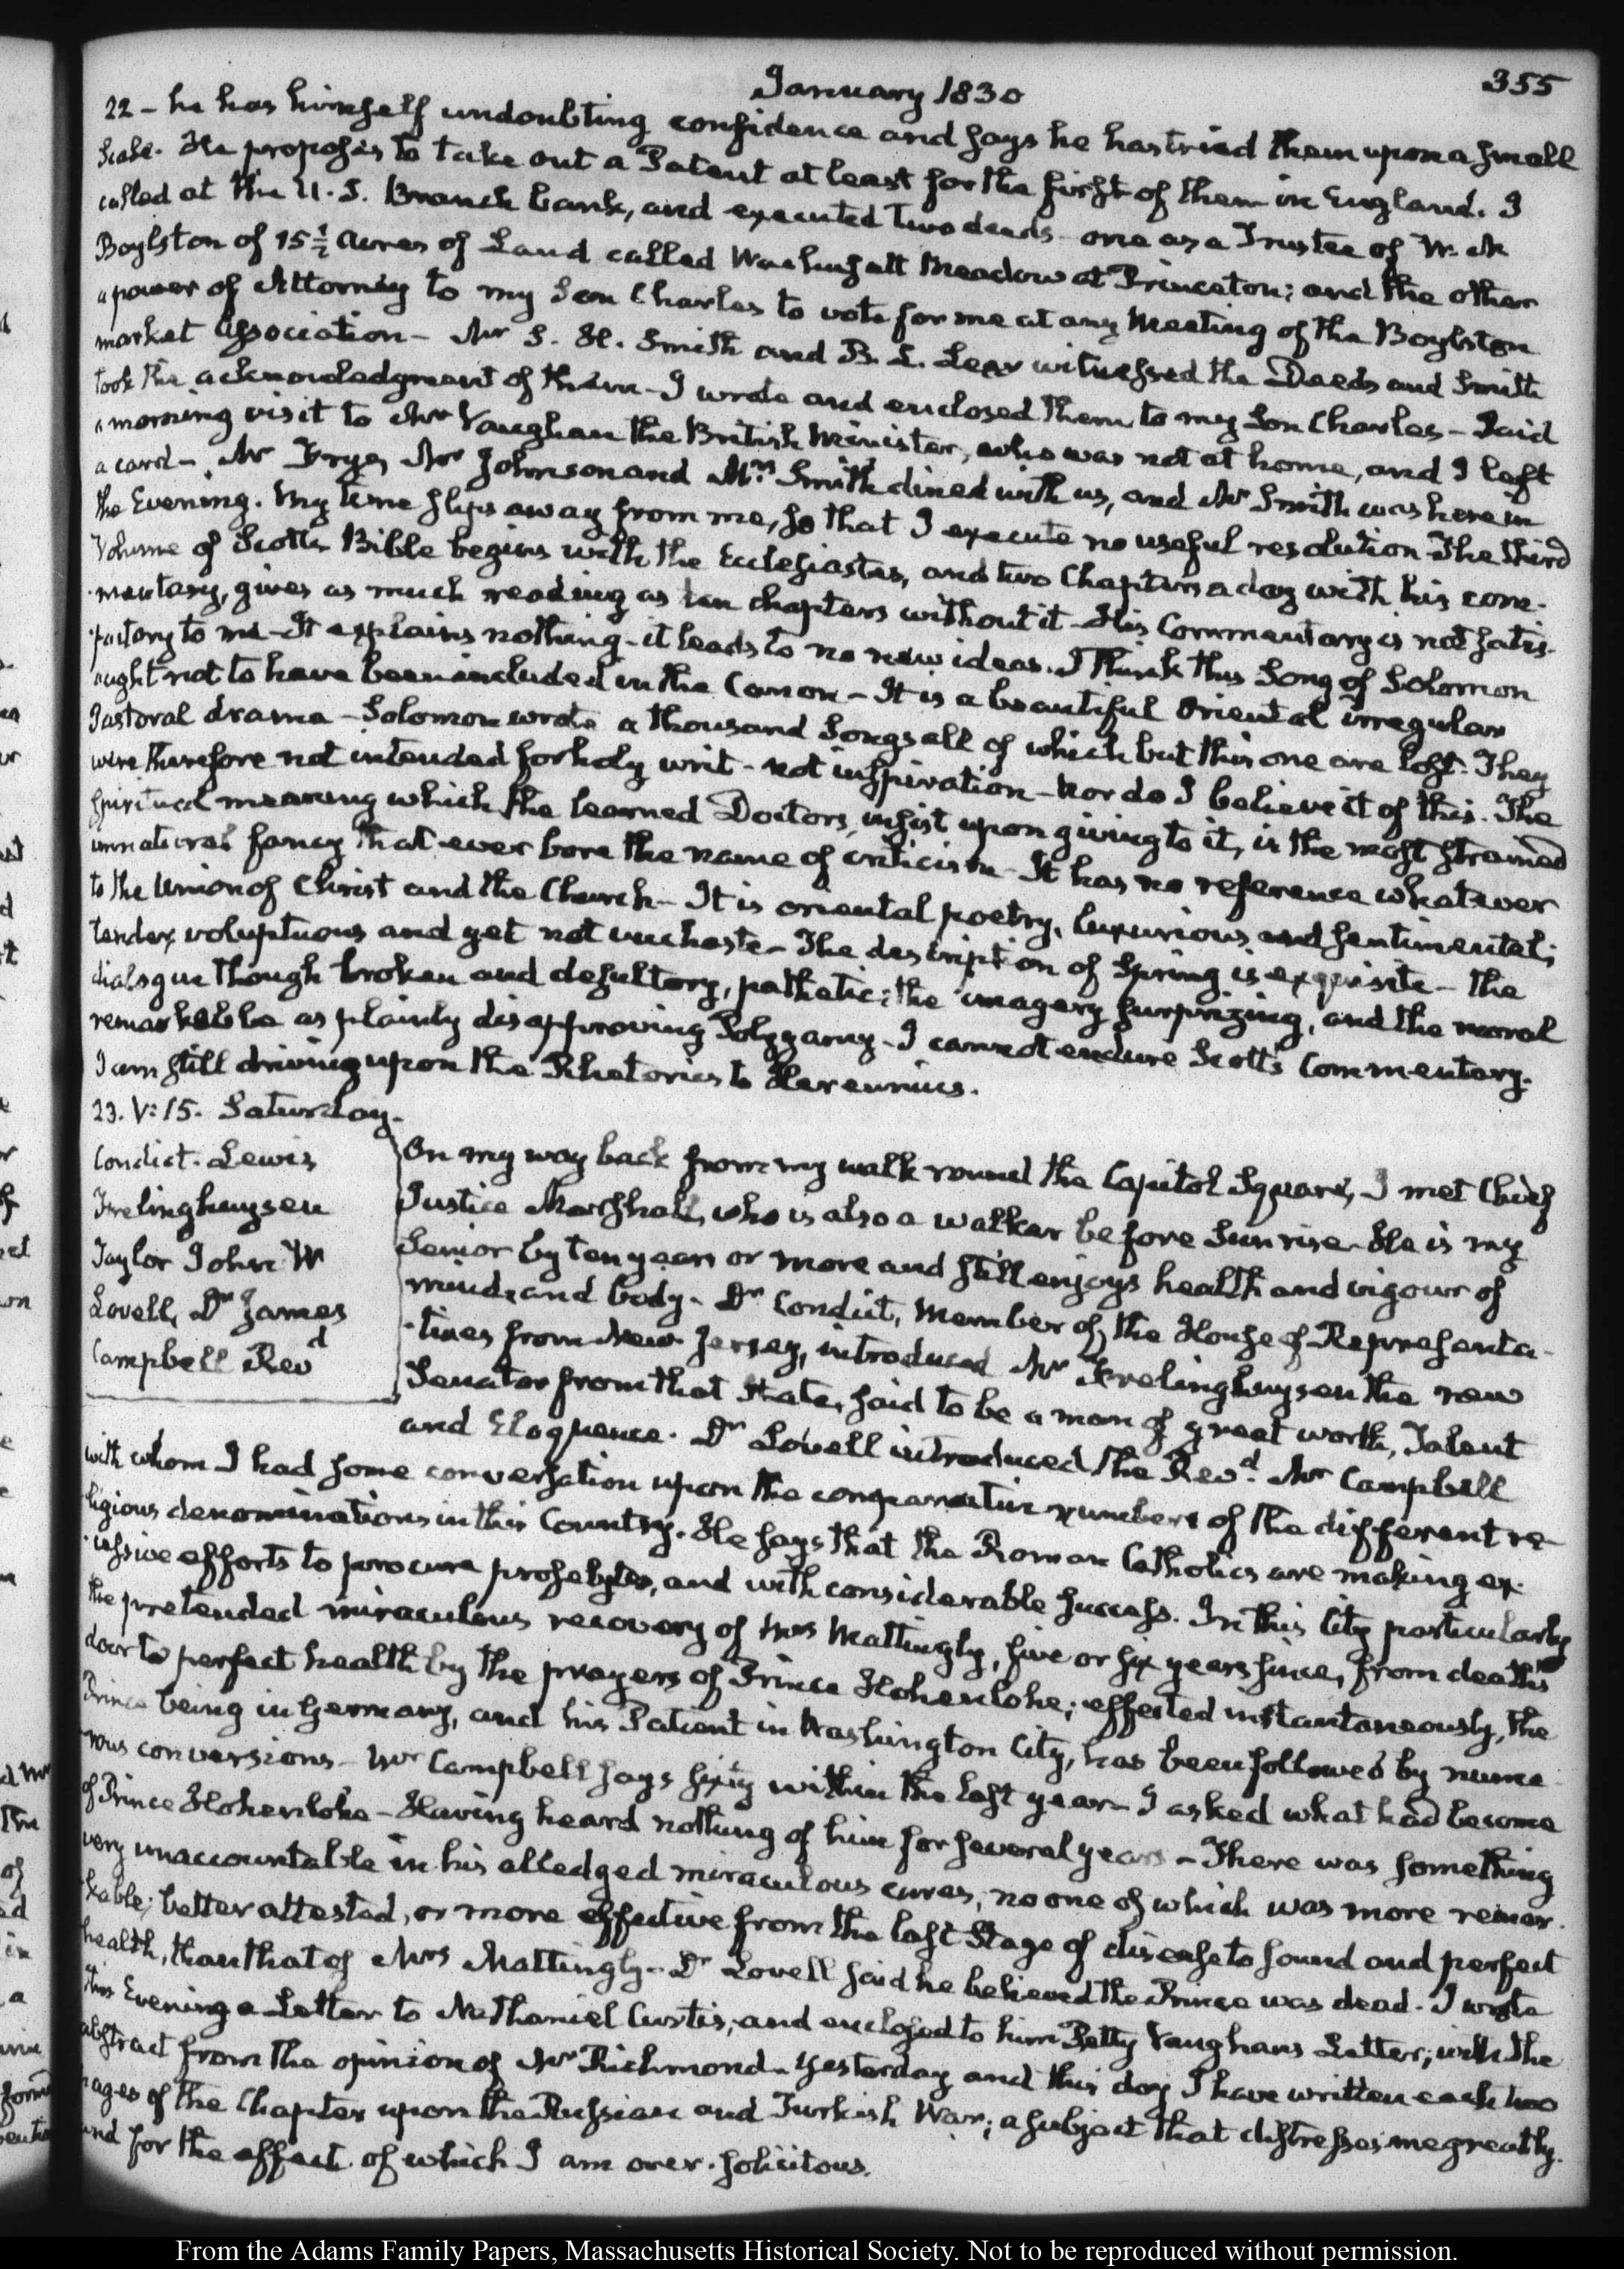 January 1830
355
22 - he has himself undoubting confidence and says he has tried them upon a small
scale. He proposes to take out a Patent at least for the first of them in England. I
called at the U. S. Branch bank, and executed two deeds - one as a Trustee of W. N
Boylston of 15 1/2 Acres of Land called Meadow at Princeton; and the other
a power of Attorney to my Son Charles to vote for me at any Meeting of the Boylston
market Association - Mr S. H. Smith and B. L. Lear witnessed the Deeds and Smith
took the acknowledgment of them - I wrote and enclosed them to my Son Charles - Paid
a morning visit to Mr Vaughan the British Minister, who was not at home, and I left
a card - Mr Frye, Mr Johnson and Mrs Smith dined with us, and Mr Smith was here in
the Evening. My time slips away from me, so that I execute no useful resolution - The third
Volume of Scott's Bible begins with the Ecclesiastes, and two Chapters a day with his com-
mentary, gives as much reading as ten chapters without it - His Commentary is not satis-
factory to me - It explains nothing - it leads to no new ideas. I think this Song of Solomon
ought not to have been included in the Canon - It is a beautiful Oriental irregular
Pastoral drama - Solomon wrote a thousand Songs all of which but this one are lost. They
were therefore not intended for holy writ - not inspiration - Nor do I believe it of this. The
spiritual meaning which the learned Doctors, insist upon giving to it, is the most strained
unnatural fancy that ever bore the name of criticism - It has no reference whatever
to the Union of Christ and the Church - It is oriental poetry, luxurious and sentimental;
tender, voluptuous and yet not unchaste - The description of Spring is exquisite - the
dialogue though broken and desultory, pathetic; the imagery surprizing, and the moral
remarkable as plainly disapproving Polygamy - I cannot endure Scott's Commentary.
I am still driving upon the Rhetorics to Herennius.
23. V:15. Saturday.
Condict. Lewis
Frelinghuysen
Taylor John W
Lovell, Dr James
Campbell Revd
On my way back from my walk round the Capitol Square, I met Chief
Justice Marshall, who is also a walker before Sunrise - He is my
Senior by ten years or more and still enjoys health and vigour of
mind, and body - Dr Condict, Member of the House of Representa-
-tives from New Jersey, introduced Mr Frelinghuysen the new
Senator from that State, said to be a man of great worth, Talent
and Eloquence. Dr Lovell introduced the Revd. Mr Campbell
with whom I had some conversation upon the comparative numbers of the different re-
ligious denominations in this Country. He says that the Roman Catholics are making ex-
cessive efforts to procure proselytes, and with considerable success. In this City particularly
the pretended miraculous recovery of Mrs Mattingly, five or six years since, from death's
door to perfect health by the prayers of Prince Hohenlohe; effected instantaneously, the
Prince being in Germany, and his Patient in Washington City, has been followed by nume-
rous conversions - Mr Campbell says sixty within the last year - I asked what had become
of Prince Hohenlohe - Having heard nothing of him for several years - There was something
very unaccountable in his alledged miraculous cures, no one of which was more remar-
kable; better attested, or more effective from the last Stage of disease to sound and perfect
health, than that of Mrs Mattingly - Dr Lovell said he believed the Prince was dead. I wrote
this Evening a Letter to Nathaniel Curtis, and enclosed to him Patty Vaughans Letter; with the
abstract from the opinion of Mr Richmond - Yesterday and this day I have written each two
pages of the Chapter upon the Russian and Turkish War; a subject that distresses me greatly.
and for the effect of which I am over-solicitous.
From the Adams Family Papers, Massachusetts Historical Society. Not to be reproduced without permission.